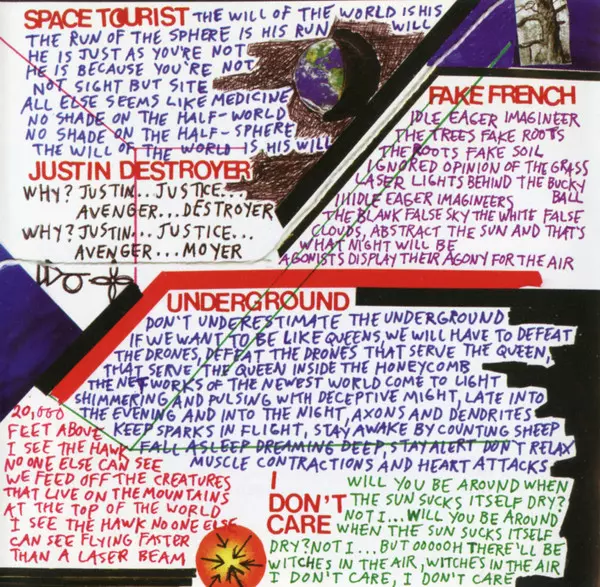 SPACE TOURIST THE WILL OF THE WORLD IS HIS WILL
THE RUN OF THE SPHERE IS HIS RUN
HE IS JUST AS YOU'RE NOT
HE IS BECAUSE YOU'RE NOT
NOT SIGHT BUT SITE
ALL ELSE SEEMS LIKE MEDICINE
NO SHADE ON THE HALF-WORLD
NO SHADE ON THE HALF-SPHERE
THE WILL OF THE WORLD IS HIS WILL
JUSTIN DESTROYER
WHY? JUSTIN... JUSTICE...
AVENGER... DESTROYER
WHY? JUSTIN... JUSTICE...
AVENGER... MOYER
FAKE FRENCH
IDLE EAGER IMAGINEER
THE TREES FAKE ROOTS
THE ROOTS FAKE SOIL
IGNORED OPINION OF THE GRASS
LASER LIGHTS BEHIND THE BUCKY BALL
IDLE EAGER IMAGINEERS
THE BLANK FALSE SKY THE WHITE FALSE
CLOUDS, ABSTRACT THE SUN AND THAT'S
WHAT NIGHT WILL BE
AGONISTS DISPLAY THEIR AGONY FOR THE AIR
UNDERGROUND
DON'T UNDERESTIMATE THE UNDERGROUND
IF WE WANT TO BE LIKE QUEENS, WE WILL HAVE TO DEFEAT
THE DRONES, DEFEAT THE DRONES THAT SERVE THE QUEEN,
THAT SERVE THE QUEEN INSIDE THE HONEYCOMB
THE NETWORKS OF THE NEWEST WORLD COME TO LIGHT
SHIMMERING AND PULSING WITH DECEPTIVE MIGHT, LATE INTO
THE EVENING AND INTO THE NIGHT, AXONS AND DENDRITES
KEEP SPARKS IN FLIGHT, STAY AWAKE BY COUNTING SHEEP
FALL ASLEEP DREAMING DEEP, STAY ALERT DON'T RELAX
MUSCLE CONTRACTIONS AND HEART ATTACKS
20,000
FEET ABOVE
I SEE THE HAWK
NO ONE ELSE CAN SEE
WE FEED OFF THE CREATURES
THAT LIVE ON THE MOUNTAINS
AT THE TOP OF THE WORLD
I SEE THE HAWK NO ONE ELSE
CAN SEE FLYING FASTER
THAN A LASER BEAM
I
DON'T
CARE
WILL YOU BE AROUND WHEN
THE SUN SUCKS ITSELF DRY?
NOT I... WILL YOU BE AROUND
WHEN THE SUN SUCKS ITSELF
DRY? NOT I... BUT OOOOH THERE'LL BE
WITCHES IN THE AIR, WITCHES IN THE AIR
I DON'T CARE, I DON'T CARE